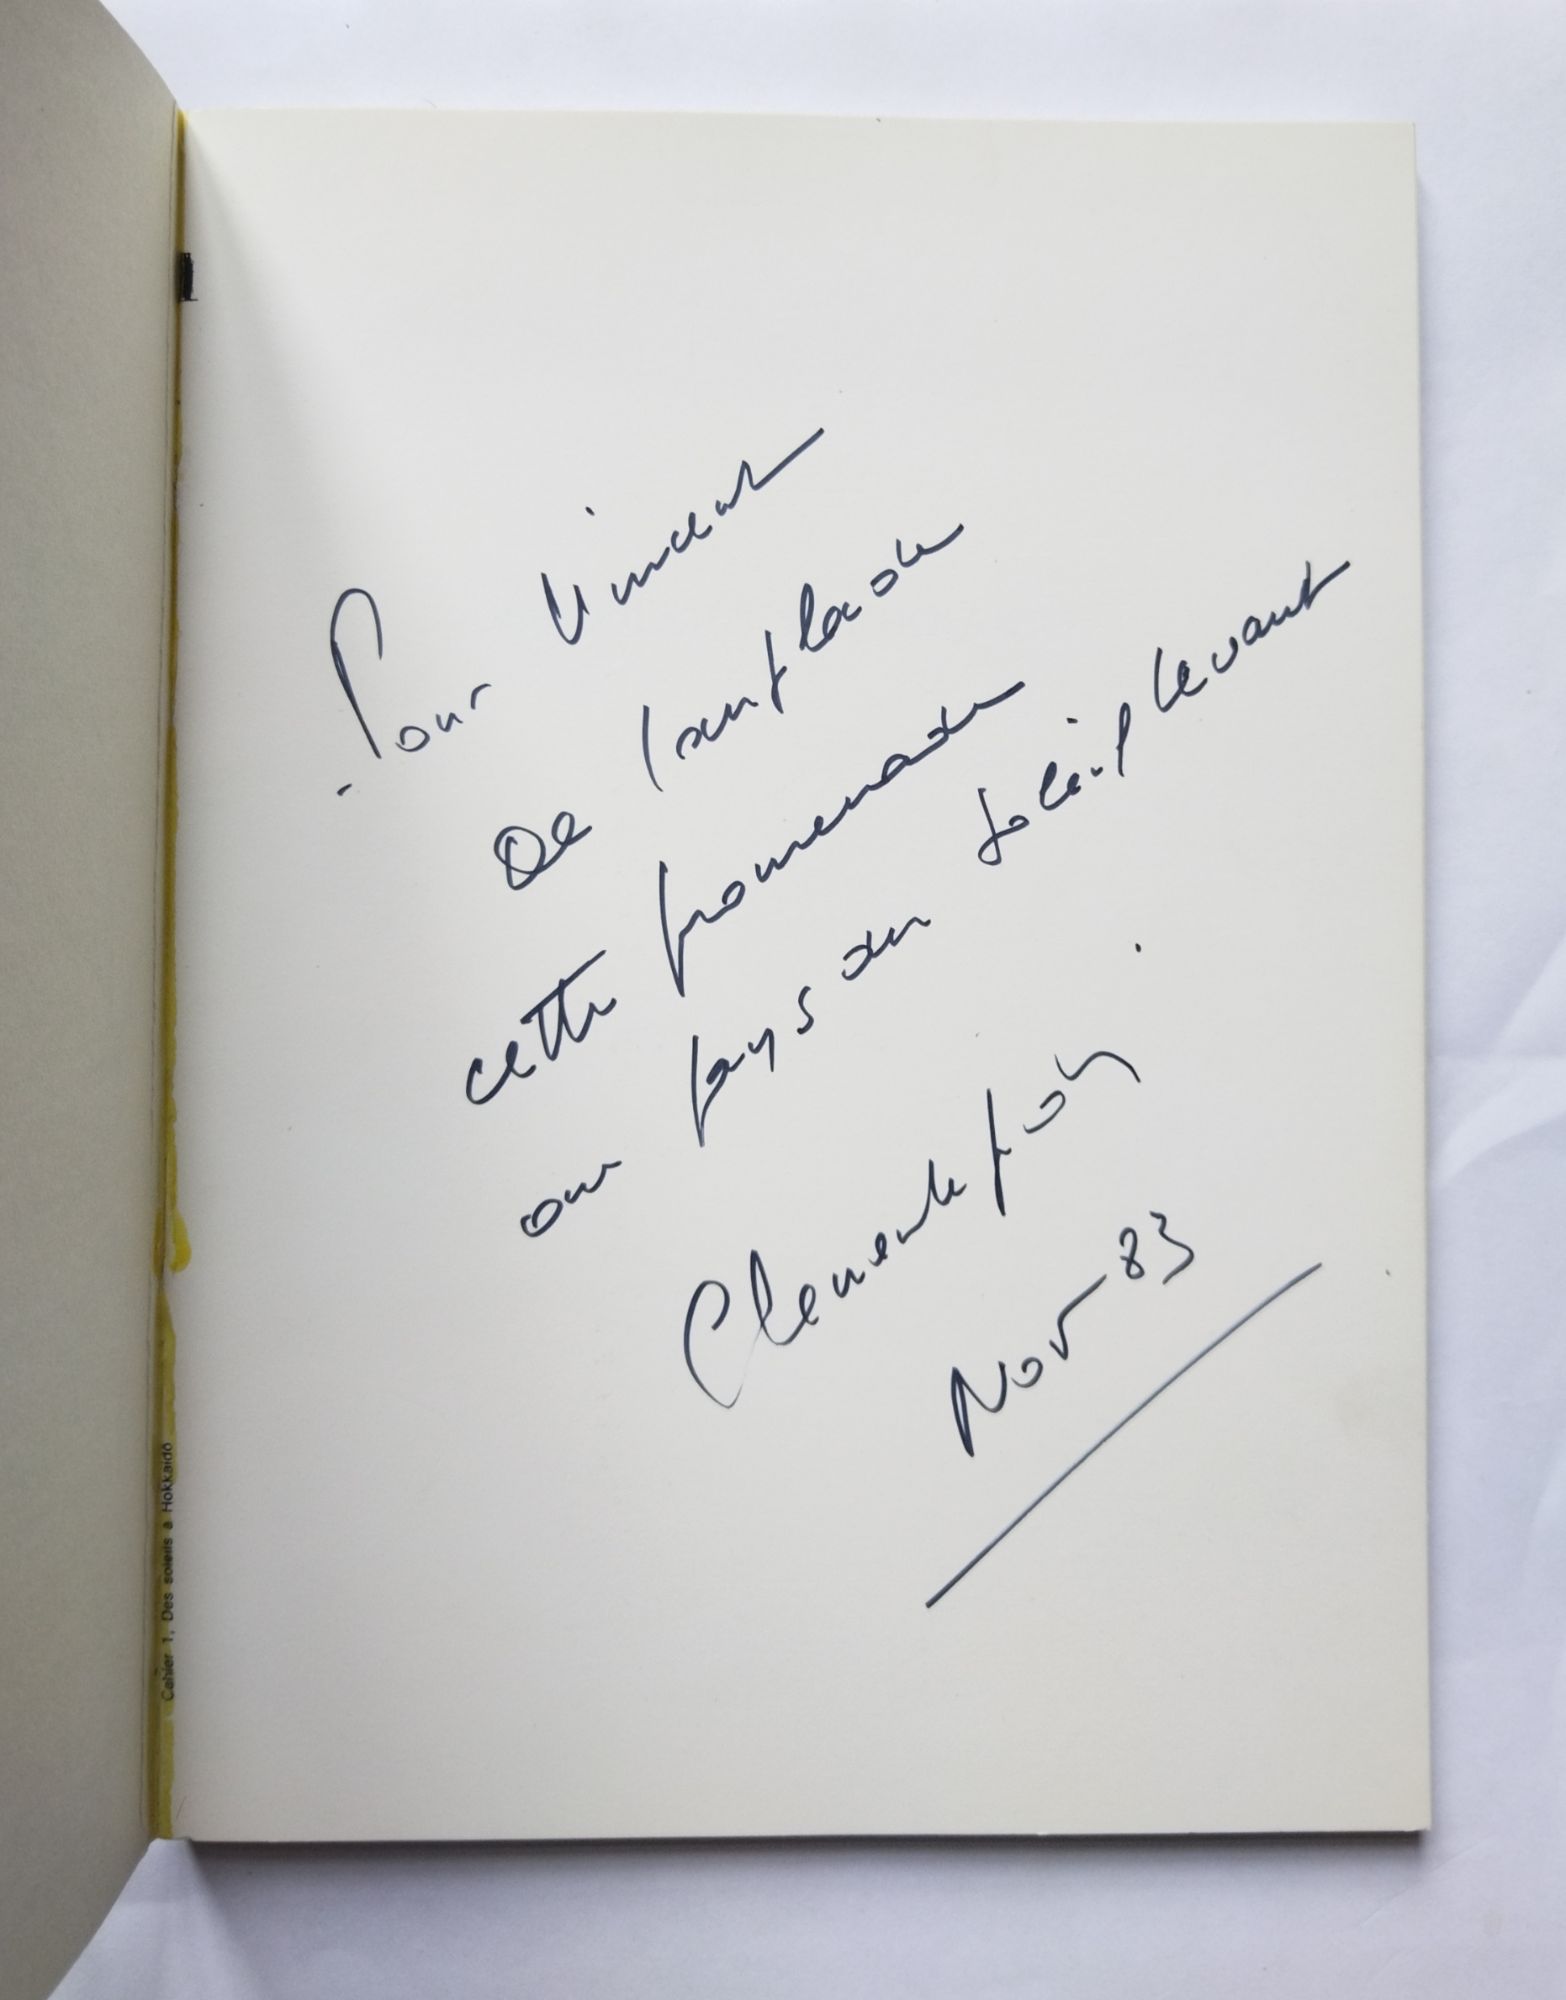 Pour Vincent
de
cette promenade
au pays du soleil levant
Clemente
Nov 83
Cahier 1, Des soleils à Hokkaidö